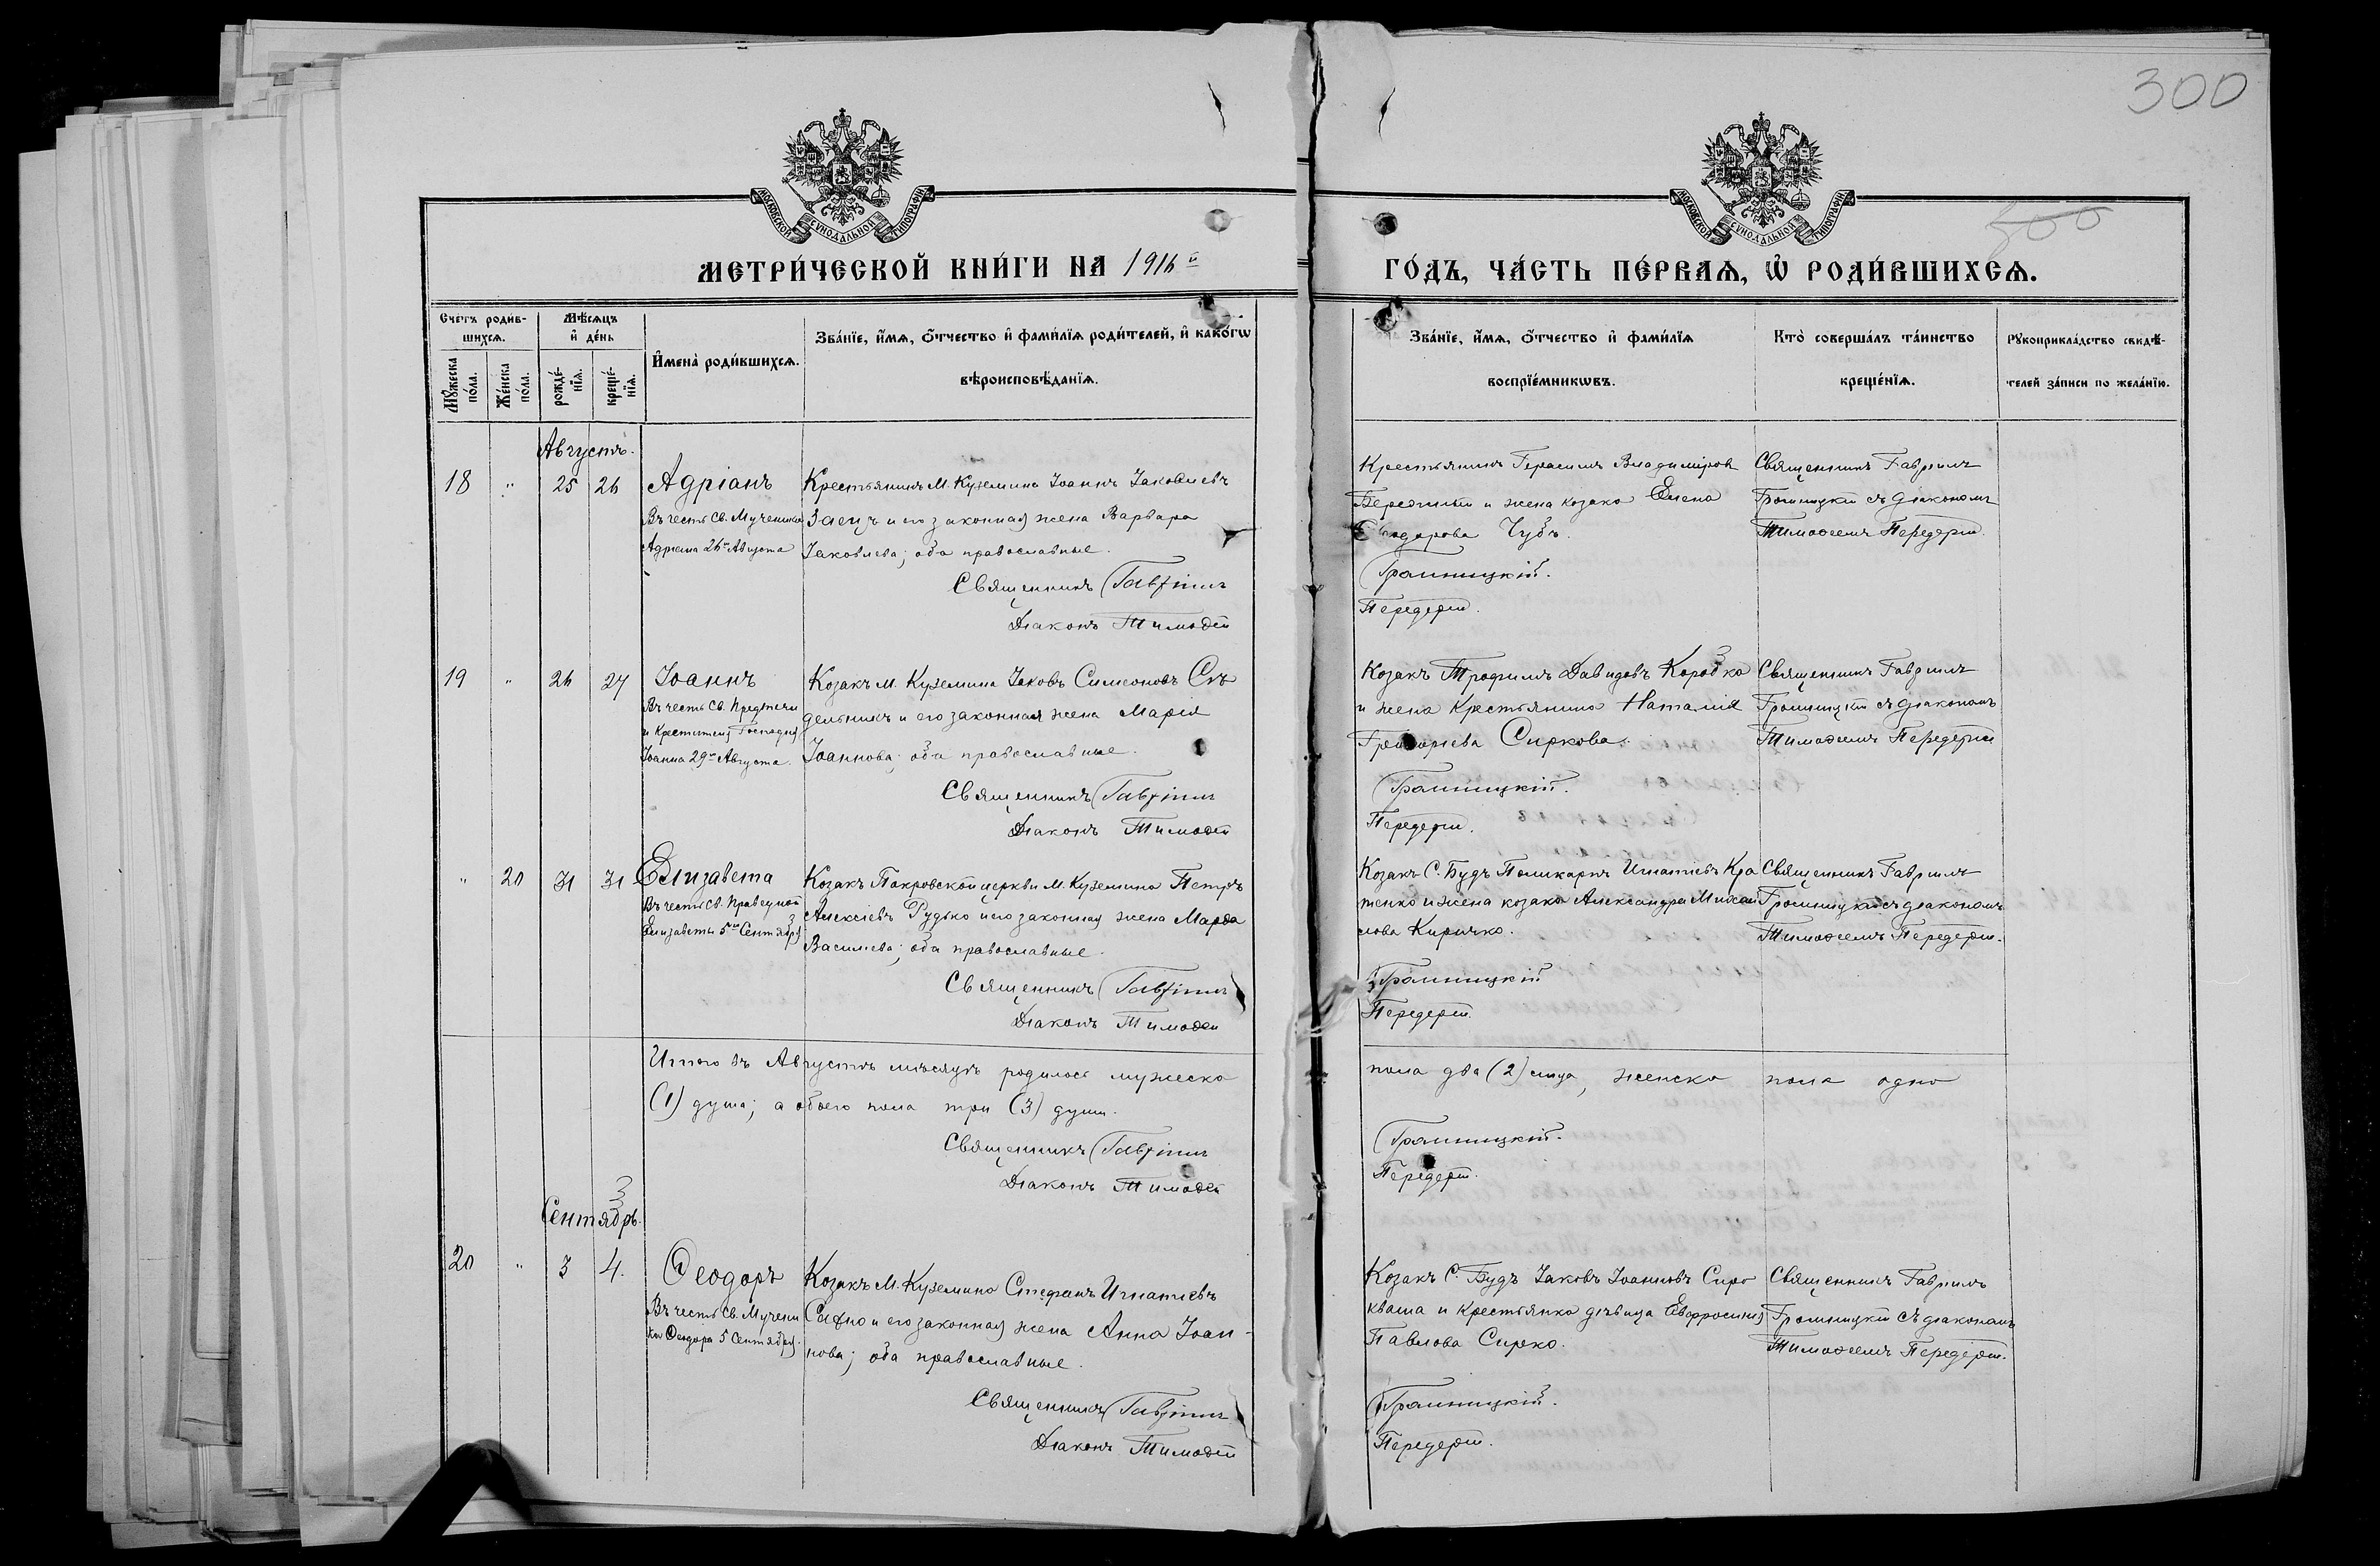 300
МОСКОВСКОЙ СѴНОДАЛЬНОЙ ТИПОГРАФІИ
МОСКОВСКОЙ СѴНОДАЛЬНОЙ ТИПОГРАФІИ
МЕТРИ́ЧЕСКОЙ КНИ́ГИ НА 1916й
ГО́ДЪ, ЧА́СТЬ ПЕ́РВАЯ, Ѡ҆ РОДИ́ВШИХСЯ.
Сче́тъ роди́в-
шихся.
Мꙋ́жеска по́ла.
Же́нска по́ла.
Мѣ́сяцъ
и҆ де́нь
рожде́-
нїя.
креще́-
нїя.
И҆мена̀ роди́вшихся.
Зва́нїе, и҆́мя, ѻ҆́тчество и҆ фами́лїя роди́телей, и҆ како́гѡ
вѣроисповѣ́данїя.
Зва́нїе, и҆́мя, ѻ҆́тчество и҆ фами́лїя
воспрїе́мникѡвъ.
Кто̀ соверша́лъ та́инство
креще́нїя.
Рꙋкоприкла́дство свидѣ́-
телей за́писи по жела́нїю.
Августъ.
18 " 25 26 Адріанъ
Въ честь Св. Мученика
Адріана 26го Августа
Крестьянинъ М. Куземина Іоаннъ Іаковлевъ
Заецъ и его законная жена Варвара
Іаковлева; оба православные.
Священникъ Гавріилъ
Діаконъ Тимоѳей
Крестьянинъ Герасимъ Владиміровъ
Бережный и жена козака Елена
Ѳеодорова Чубъ.
Громницкій.
Передерій.
Священникъ Гавріилъ
Громницкій съ діакономъ
Тимоѳеемъ Передерій.
19 " 26 27 Іоаннъ
Въ честь Св. Предтечи
и Крестителя Господня
Іоанна 29го Августа.
Козакъ М. Куземина Іаковъ Симеоновъ Съ
дельникъ и его законная жена Марія
Іоаннова; оба православные.
Священникъ Гавріилъ
Діаконъ Тимоѳей
Козакъ Трофимъ Давидовъ Коробка
и жена Крестьянина Наталія
Григорьева Сиркова.
Громницкій.
Передерій.
Священникъ Гавріилъ
Громницкій съ діакономъ
Тимоѳеемъ Передерій
" 20 31 31 Елизавета
Въ честь Св. Праведной
Елизаветы 5го Сентября
Козакъ Покровской церкви М. Куземина Петръ
Алексіевъ Рудько и его законная жена Марѳа
Василіева; оба православные.
Священникъ Гавріилъ
Діаконъ Тимоѳей
Козакъ С. Будъ Поликарпъ Игнатіевъ Кра
тенко и жена козака Александра Михаи
лова Киричко.
Громницкій
Передерій.
Священникъ Гавріилъ
Громницкій съ діакономъ
Тимоѳеемъ Передерій.
Итого въ Августѣ мѣсяцѣ родилось мужеска
пола два (2) лица, женска пола одна
(1) душа; а обоего пола три (3) души.
Священникъ Гавріилъ
Діаконъ Тимоѳей
Громницкій.
Передерій.
Сентябрь.
20 " 3 4. Ѳеодоръ
Въ честь Св. Мучени
ка Ѳеодора 5 Сентября.
Козакъ М. Куземина Стефанъ Игнатіевъ
Сахно и его законная жена Анна Іоан-
нова; оба православные.
Священникъ Гавріилъ
Діаконъ Тимоѳей
Козакъ С. Будъ Іаковъ Іоанновъ Сиро
кваша и Крестьянка дѣвица Евфросинія
Павлова Сирко.
Громницкій.
Передерій.
Священникъ Гавріилъ
Громницкій съ діакономъ
Тимоѳеемъ Передерій.